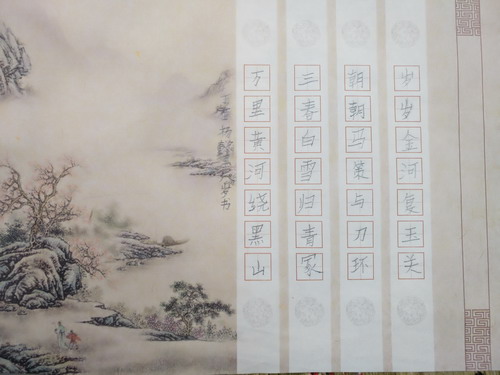 岁岁金河复玉关
朝朝马策与力环
三春白雪归青家
万里黄河绕黑山